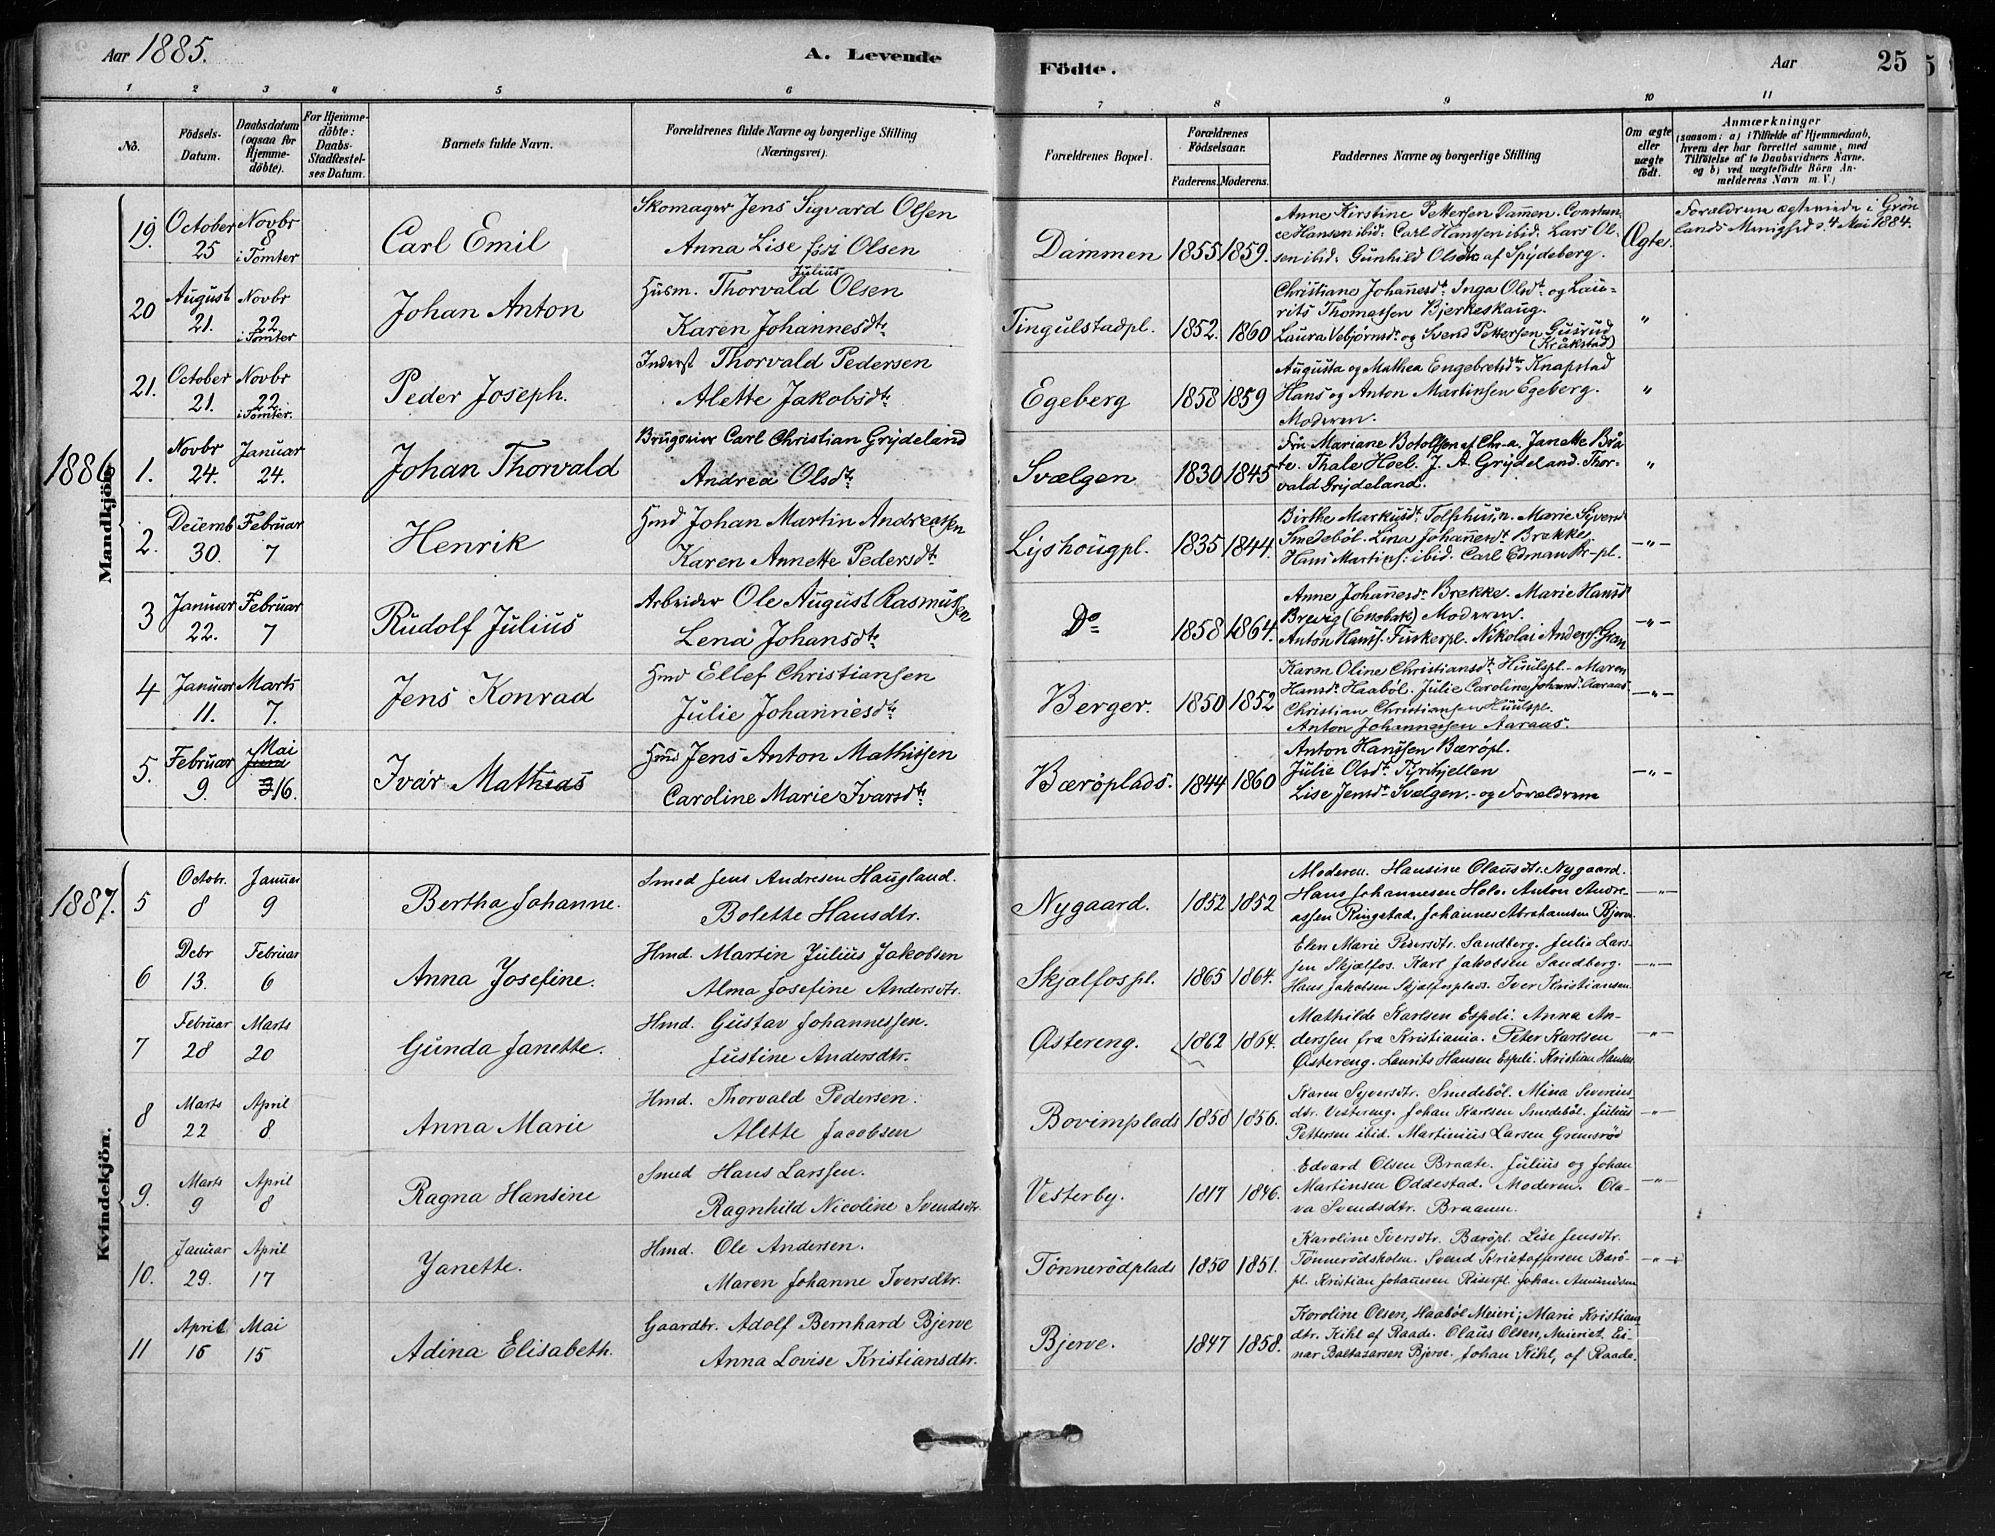 Aar 1885. A. Levende Födte. Aar 25
1 2 3 4 5 6 7 8 9 10 11
No. Födsels-Datum. Daabsdatum (ogsaa for Hjemme-döbte). For Hjemme-döbte: Daabs-Stadfæstel-ses Datum. Barnets fulde Navn. Forældrenes fulde Navne og borgerlige Stilling (Næringsvei). Forældrenes Bopæl. Forældrenes Födselsaar. Faderens. Moderens. Faddernes Navne og borgerlige Stilling Om ægte eller uægte födt. Anmærkninger (saasom: a) i Tilfælde af Hjemmedaab, hvem der har forrettet samme, med Tilföielse af to Daabsvidners Navne. og b) ved uægtefödte Börn Anmelderens Navn m. V.)
Mandkjön.
19. October 25 Novbr 8 i Tomter Carl Emil Skomager Jens Sigvard Olsen
Anna Lise Olsen
Dammen 1855 1859. Anne Kirstine Pettersen Dammen. Constan-
ce Hansen ibid. Carl Hanssen ibid. Lars Ol-
sen ibid. Gunhild Olsdtr af Spydeberg.
Ægte. Forældrene ægteviede i Grön
lands Menighed d. 4 Mai 1884.
20 August 21. Novbr 22 i Tomter Johan Anton Husm. Thorvald Julius Olsen
Karen Johannesdtr
Tingulstadpl. 1852. 1860 Christiane Johannesdtr Inga Olsdtr og Lau-
rits Thomassen Bjerkeskaug.
Laura Vebjørnsdtr og Svend Pettersen Gusrud
(Kråkstad) "
21. October 21. Novbr 22. i Tomter. Peder Joseph. Inderst Thorvald Pedersen
Alette Jakobsdtr
Egeberg 1858 1859 Augusta og Mathea Engebretsdtr Knapstad
Hans og Anton Martinsen Egeberg.
Moderen. "
1886 1. Novbr 24. Januar 24. Johan Thorvald Brugseier Carl Christian Grydeland
Andrea Olsdtr
Svælgen 1830 1845 Fru Mariane Botolfsen af Chr-a. Janette Brå
te. Thale Hoel. J. A. Grydeland. Thor-
vald Grydeland. "
2. Decemb 30. Februar 7 Henrik Hmd Johan Martin Andreassen
Karen Annette Pedersdtr
Lyshougpl. 1835 1844. Birthe Markusdtr Tolfhusn. Marie Sivers
Smedeböl. Lina Johannesdtr Brekke,
Hans Martins: ibid. Carl Edman -pl. -"-
3 Januar 22. Februar 7 Rudolf Julius Arbeider Ole August Rasmussen
Lena Johansdtr
Do 1858 1864. Anne Johannesdtr Brekke. Marie Hansd
Brevig (Enebak) Moderen.
Anton Hansf. Nikolai Anders -"-
4 Januar 11. Marts 7. Jens Konrad Hmd Ellef Christiansen
Julie Johannesdtr
Berger. 1850 1852 Karen Oline Christiansdtr Huulspl. Maren
Hansdtr Haaböl. Julie Caroline Johansd. Aaraas.
Christian Christiansen Huulspl.
Anton Johannessen Aaraas. -"-
5. Februar 9. Mai 16. Ivar Mathias Hmd Jens Anton Mathissen
Caroline Marie Ivarsdtr
Bærøplads. 1844 1860 Anton Hanssen Bærøpl.
Julie Olsdtr Tyrihjellen
Lise Jensdtr Svælgen. og Forældrene -"-
Kvindekjön.
1887. 5 Octobr. 8 Januar 9 Bertha Johanne. Smed Jens Andresen Haugland.
Bolette Hansdtr.
Nygaard. 1852 1852 Moderen. Hansine Olausdtr. Nygaard.
Hans Johannesen Holo. Anton Andre-
assen Ringstad. Johannes Abrahamsen Bjerve -"-
6 Debr 13. Februar 6 Anna Josefine. Hmd. Martin Julius Jakobsen
Alma Josefine Andersdtr.
Skjalfospl. 1865 1864. Elen Marie Pedersdtr. Sandberg. Julie Lars-
sen Skjælfos. Karl Jakobsen Sandberg.
Hans Jakobsen Skjælfosplads. Iver Kristiansen -"-
7 Februar 28 Marts 20 Gunda Janette. Hmd. Gustav Johannessen.
Justine Andersdtr.
Østereng. 1862 1864. Mathilde Karlsen Espeli. Anna An-
derssen fra Kristiania. Peter Karlsen
Østereng. Laurits Hansen Espeli. Kristian Hansen -"-
8 Marts 22 April 8 Anna Marie Hmd. Thorvald Pedersen.
Alette Jacobsen
Bovimplads 1858 1856. Karen Syversdtr. Smedeböl. Mina Severins-
dtr. Vestereng. Johan Karlsen Smedeböl. Julius
Pettersen ibid. Martinius Larsen Gremsröd -"-
9. Marts 9 April 8 Ragna Hansine Smed Hans Larssen.
Ragnhild Nicoline Svendsdtr.
Vesterby. 1817 1846. Edvard Olsen Braate. Julius og Johan
Martinsen Oddestad. Moderen. Ola-
va Svendsdtr. Braanen. -"-
10. Januar 29. April 17 Janette. Hmd. Ole Andersen.
Maren Johanne Iversdtr.
Tönnerödplads 1850 1851. Karoline Iversdtr. Bæröpl. Lise Jensdtr.
Tönnerödskolen. Svend Kristoffersen Bærö-
pl. Kristian Johannesen Röserpl. Johan Amundsen -"-
11 April 16 Mai 15 Adina Elisabeth. Gaardbr. Adolf Bernhard Bjerve
Anna Lovise Kristiansdtr.
Bjerve. 1847 1858. Karoline Olsen, Haaböl Meieri; Marie Kristians
dtr. Kihl af Raade. Olaus Olsen, Meieriet. Ei-
nar Baltazarsen Bjerve. Johan Kihl, af Raade.